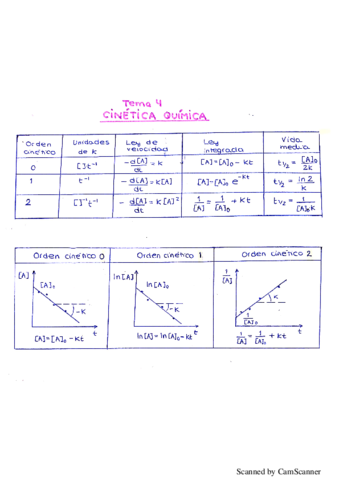 Tema 4
CINÉTICA QUÍMICA
Orden cinético | Unidades de k | Ley de velocidad | Ley integrada | Vida media
0 | [ ]t⁻¹ | -d[A]/dt = k | [A]=[A]₀ - Kt | t½ = [A]₀/2k
1 | t⁻¹ | -d[A]/dt = k[A] | [A]-[A]₀ e^-Kt | t½ = ln 2/k
2 | [ ]⁻¹t⁻¹ | -d[A]/dt = k[A]² | 1/[A] = 1/[A]₀ + Kt | t½ = 1/[A]₀K
Orden cinético 0 | Orden cinético 1 | Orden cinético 2
[A] | ln[A] | 1/[A]
[A]₀ | ln[A]₀ | K
-K | -K | 1/[A]₀
t | t | t
[A]=[A]₀-Kt | ln[A]=ln[A]₀-Kt | 1/[A] = 1/[A]₀ + Kt
Scanned by CamScanner